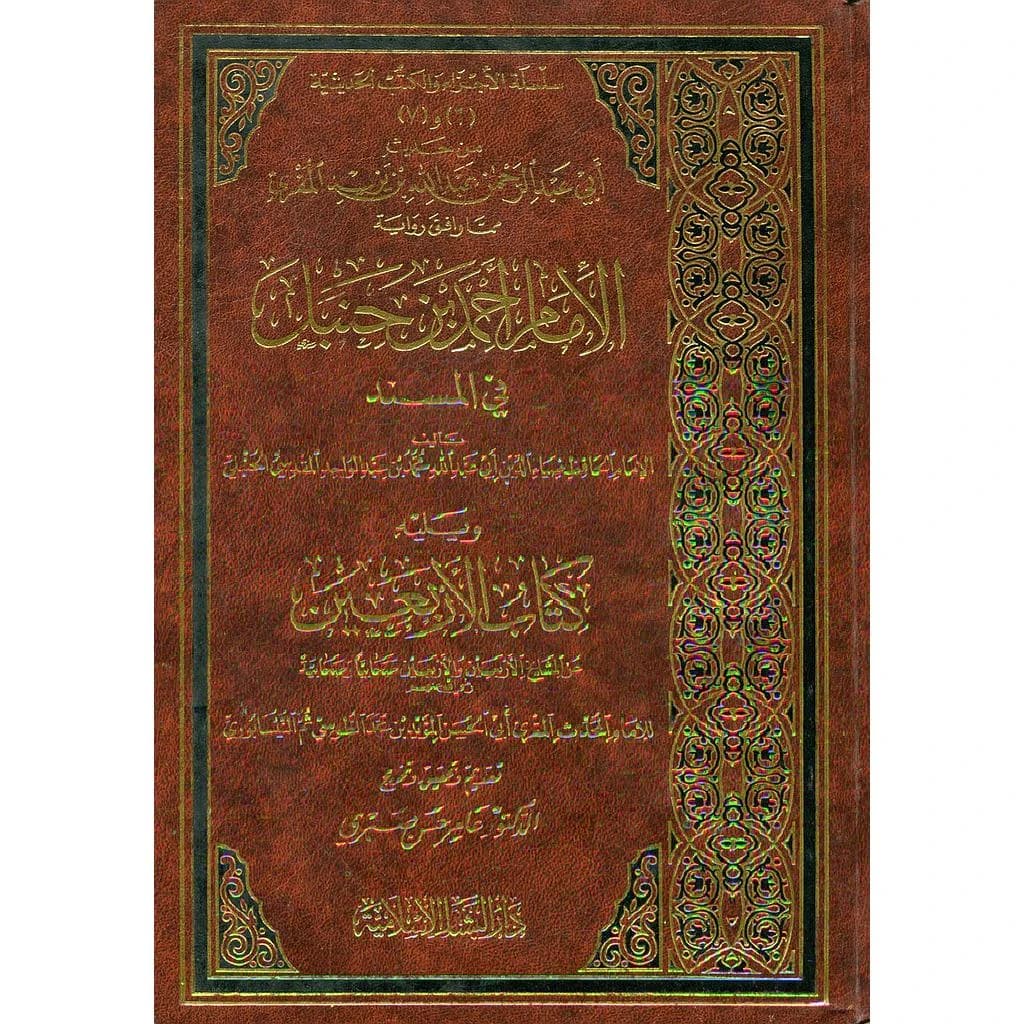 سلسلة الأجزاء والكتب الحديثية
(٦) و (٧)
من حديث
أبي عبد الرحمن عبد الله بن يزيد المقرئ
مما وافق رواية
الإمام أحمد بن حنبل
في المسند
تأليف
الإمام الحافظ ضياء الدين أبي عبد الله محمد بن عبد الواحد المقدسي الحنبلي
ويليه
كتاب الأربعين
عن المشايخ الأربعين والأربعين صحابياً وصحابية
للإمام المحدث المقرئ أبي الحسن المؤيد بن محمد الطوسي ثم النيسابوري
تقديم وتحقيق وتخريج
الدكتور عامر حسن صبري
دار البشائر الإسلامية